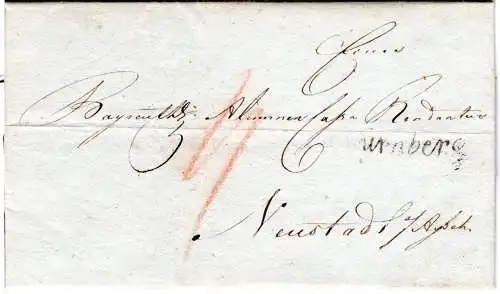 Einer
Bayreuther Alumneen Cassa Rendantur
urnberg
Neustadt a/Aysch.